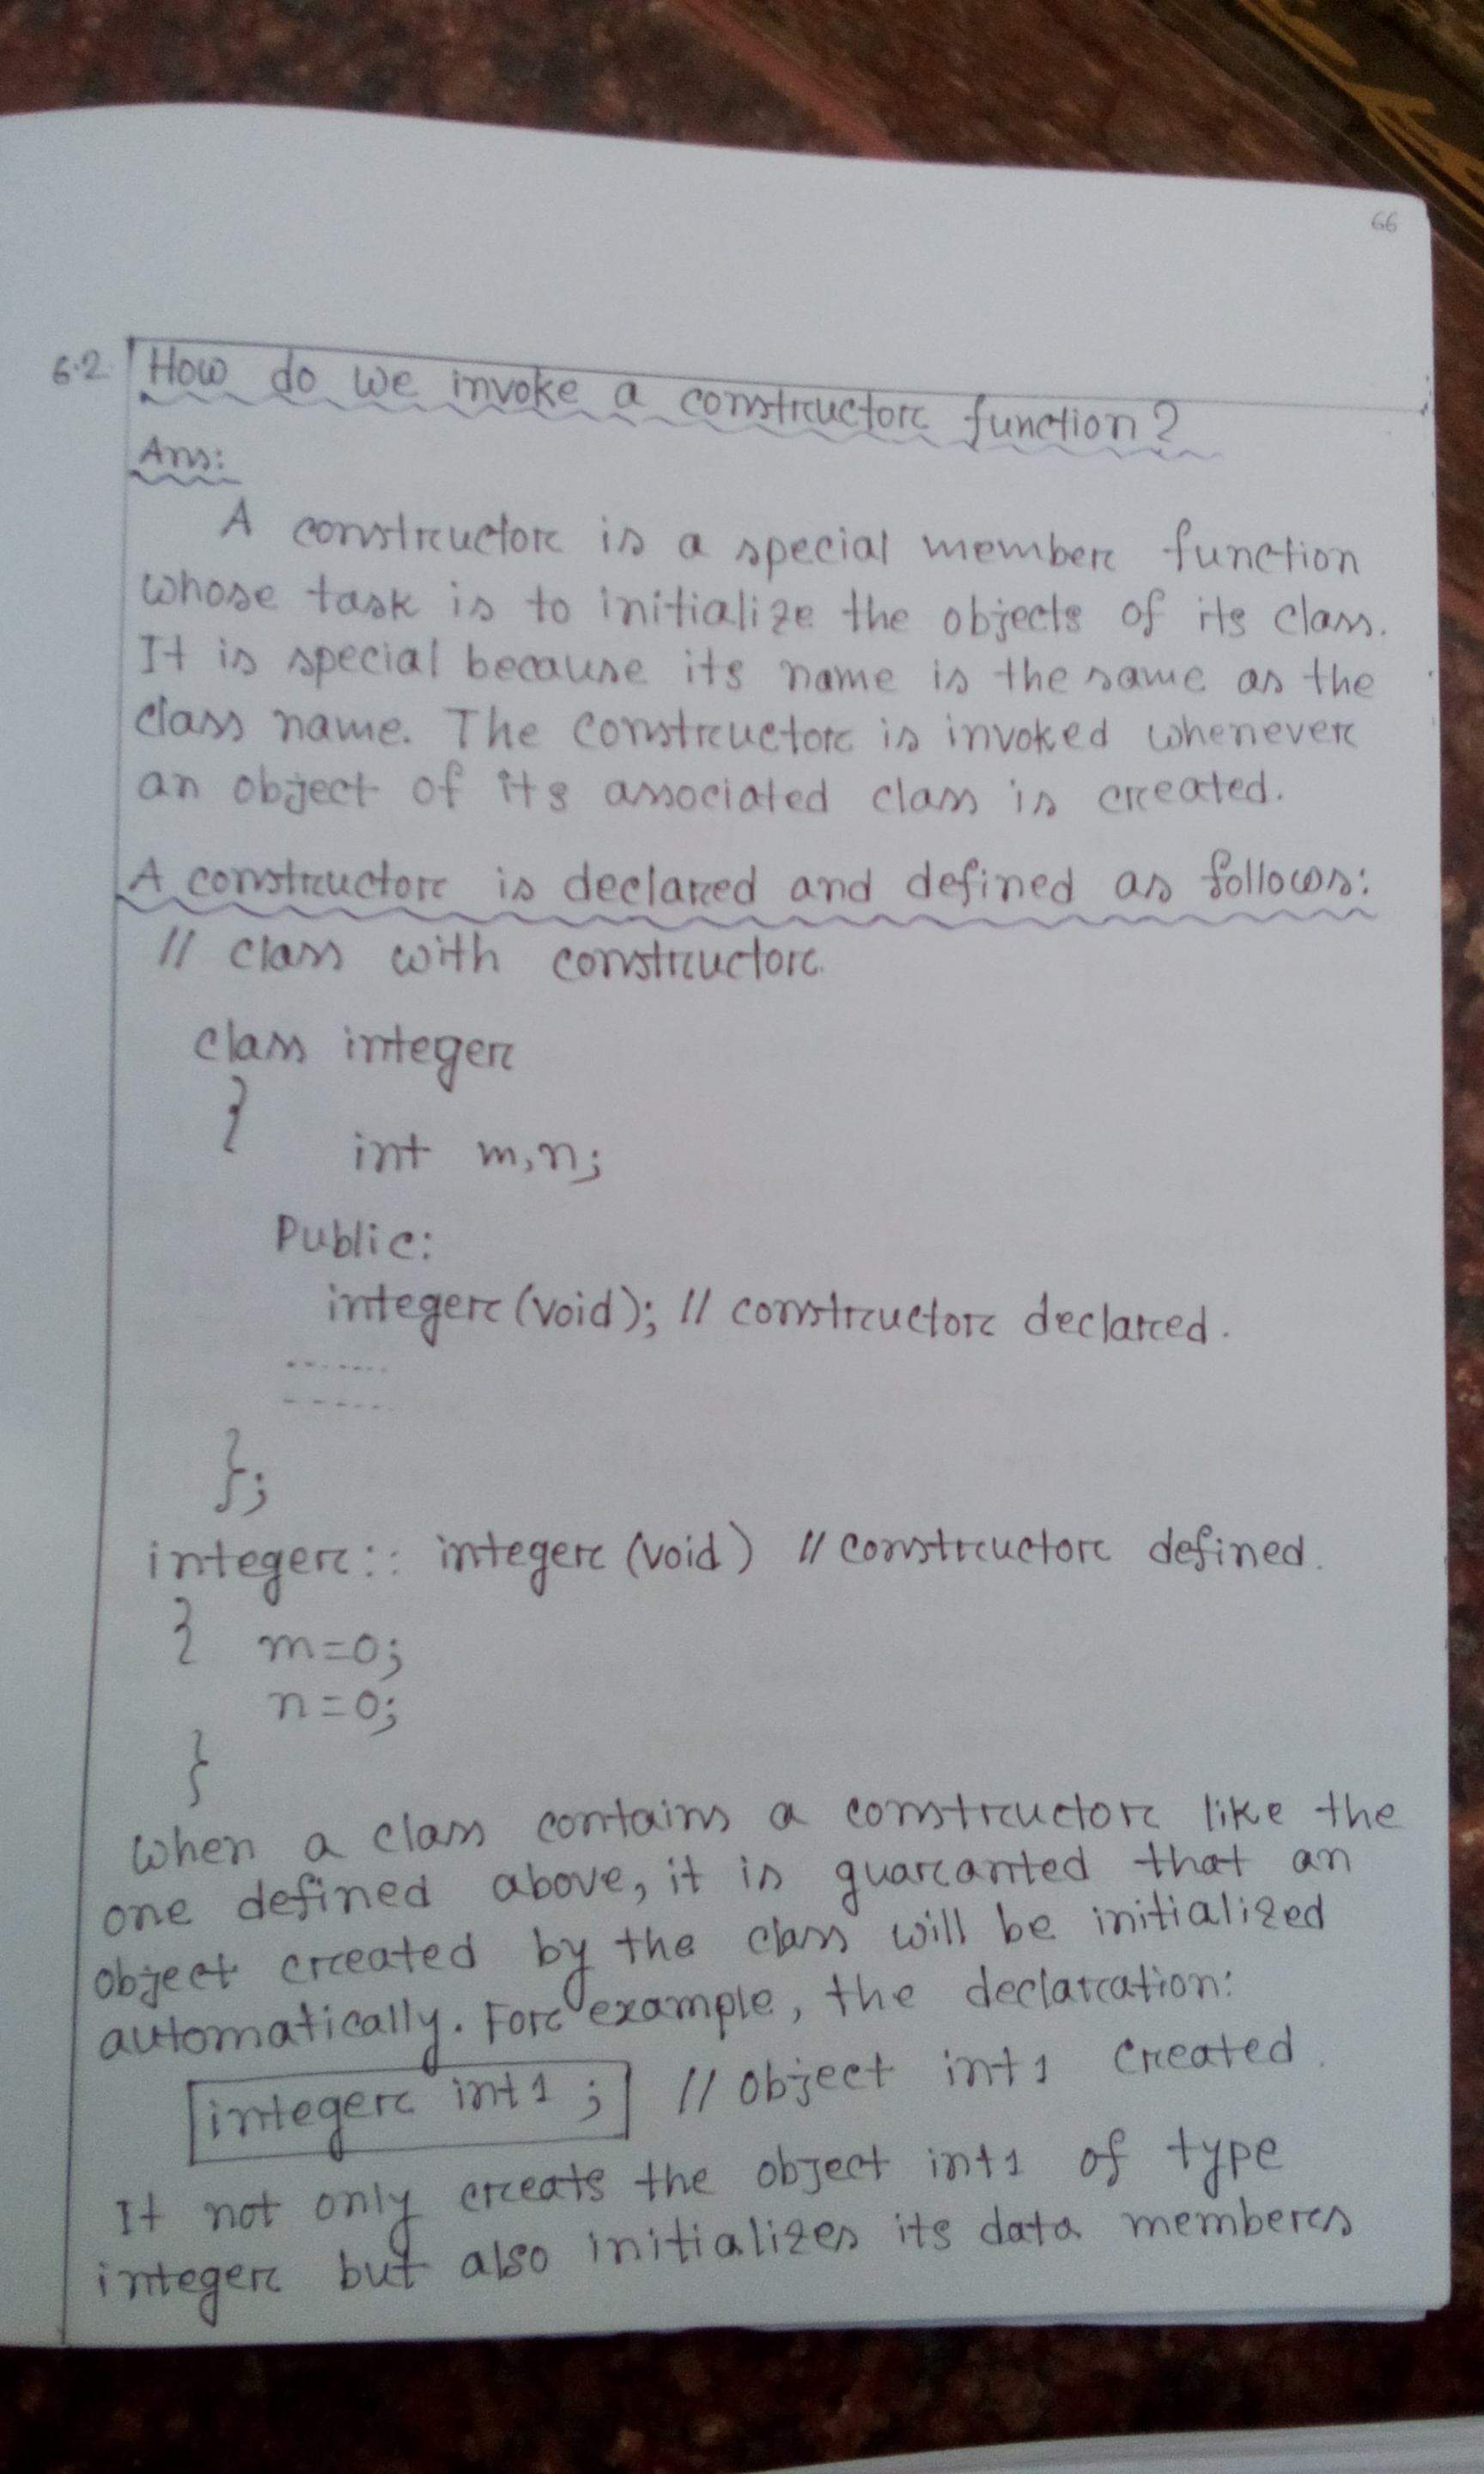 66
6.2 How do we invoke a constructor function?
Ans:
A constructor is a special member function
whose task is to initialize the objects of its class.
It is special because its name is the same as the
class name. The constructor is invoked whenever
an object of its associated class is created.
A constructor is declared and defined as follows:
// class with constructor.
class integer
{
int m,n;
Public:
integer (void); // constructor declared.
-------
------
};
integer:: integer (void) // constructor defined.
{ m=0;
n=0;
}
When a class contains a constructor like the
one defined above, it is guaranted that an
object created by the class will be initialized
automatically. For example, the declaration:
integer int1 ; // object int1 created.
It not only creats the object int1 of type
integer but also initializes its data members